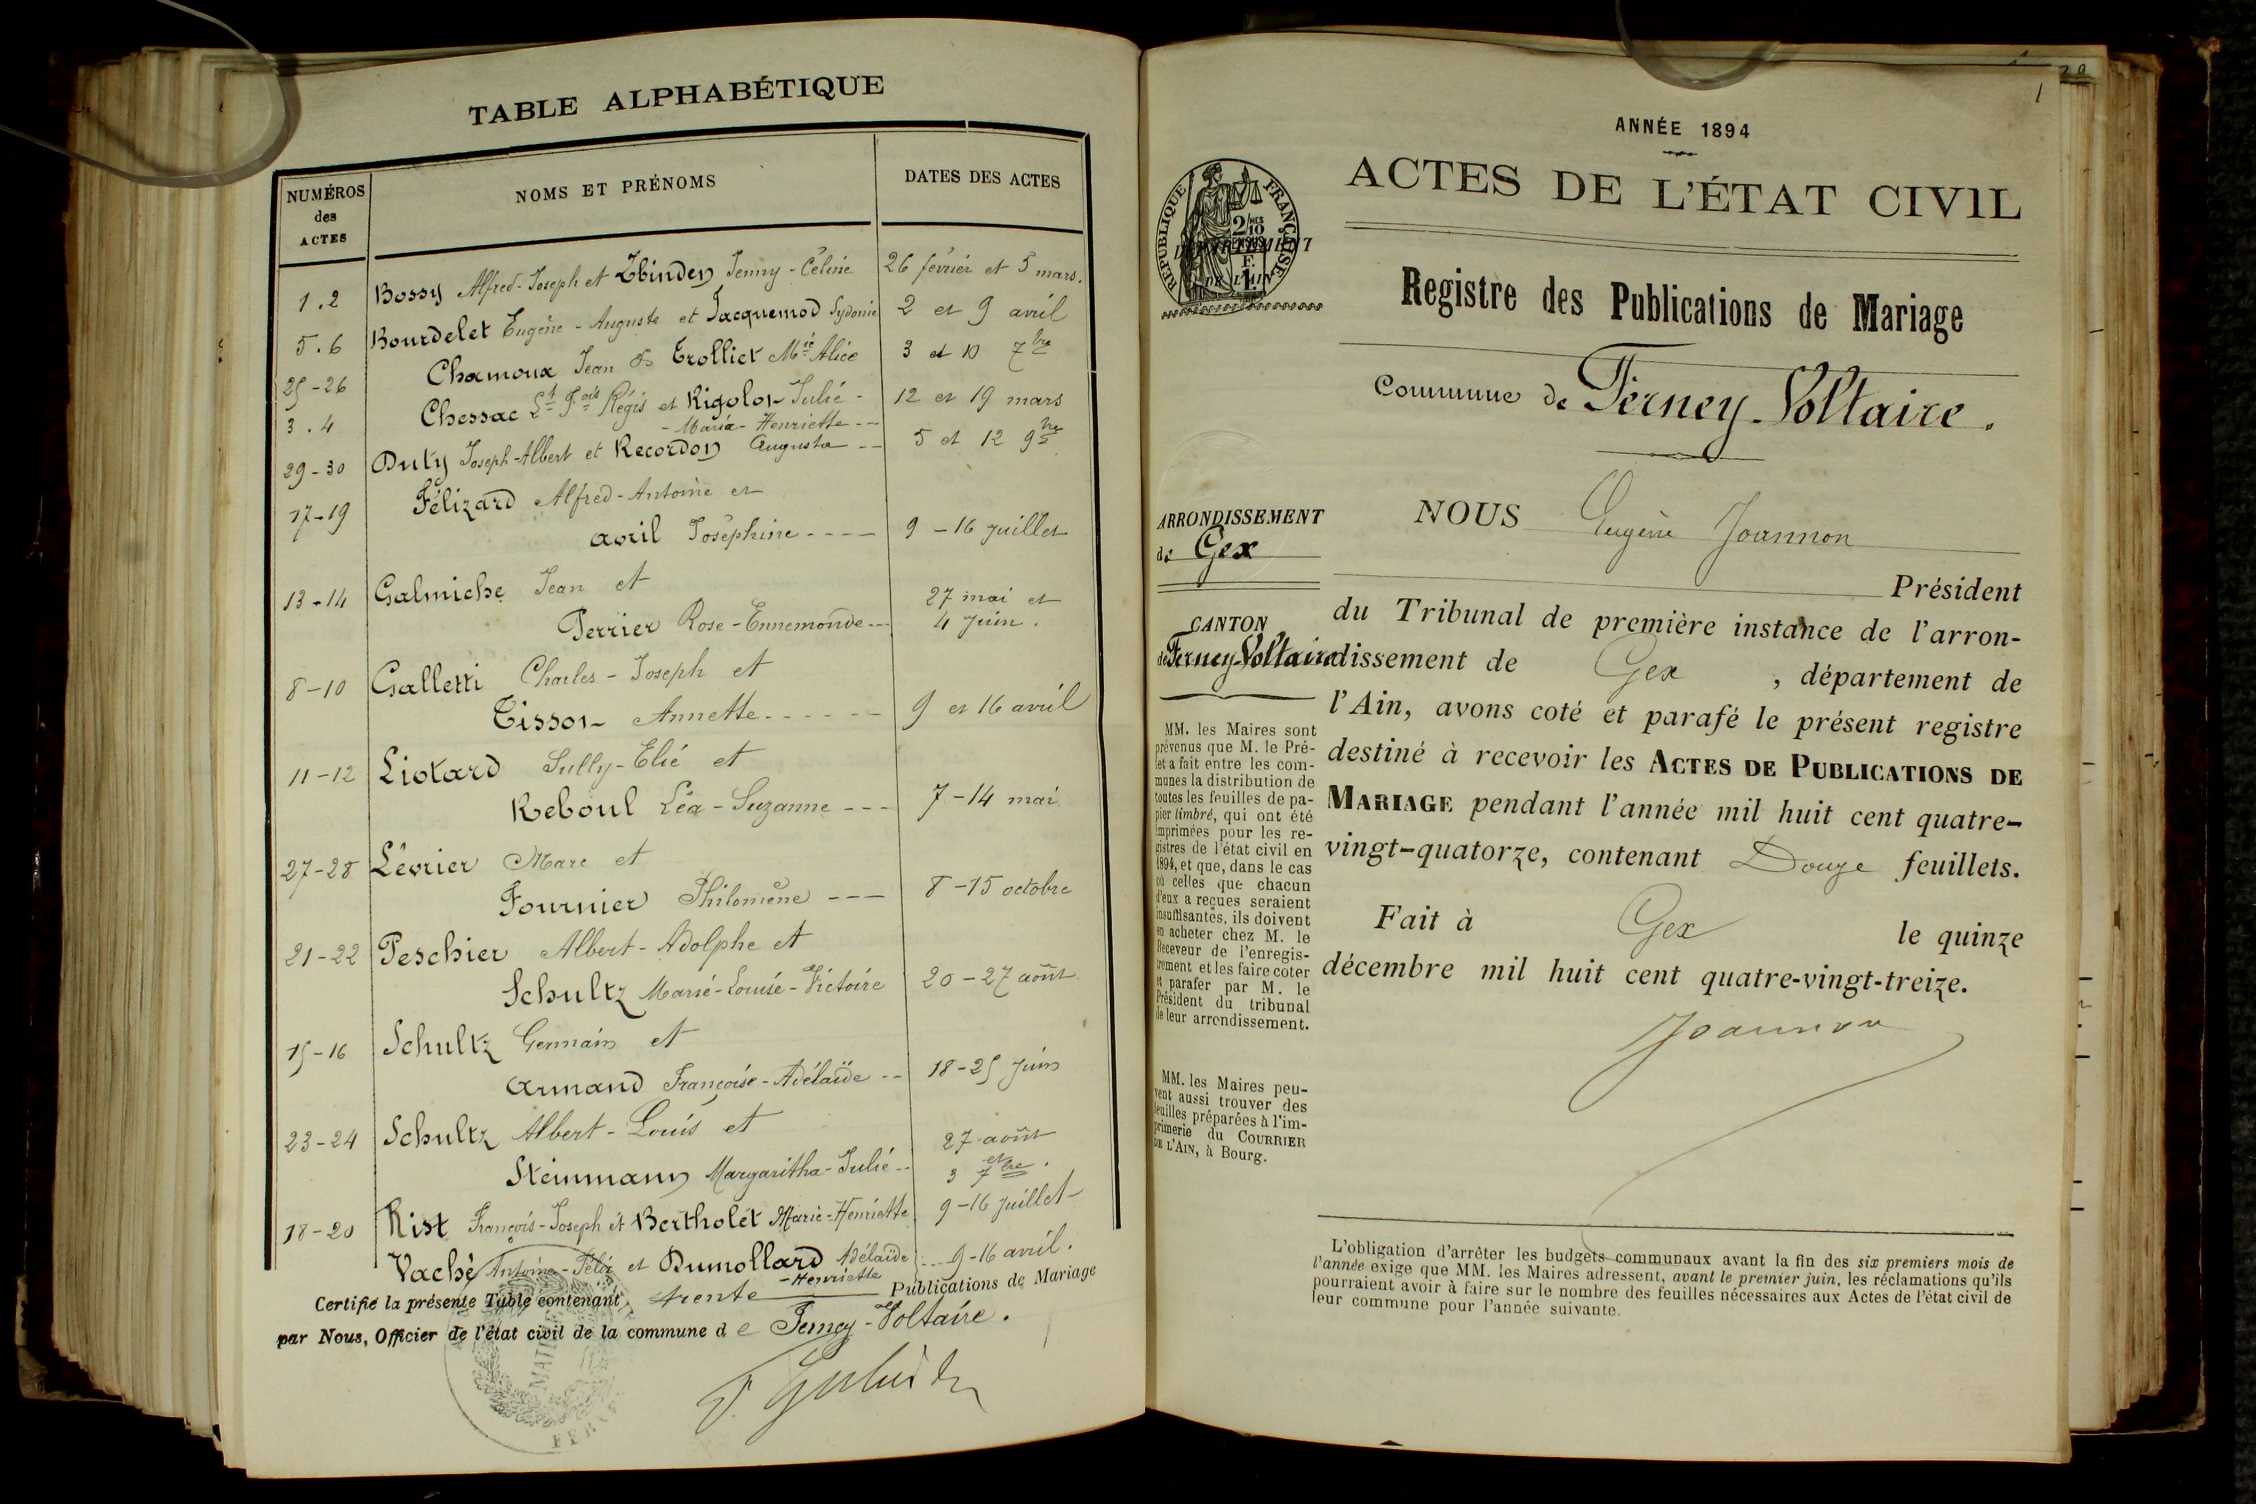 TABLE ALPHABÉTIQUE
NUMÉROS des ACTES
NOMS ET PRÉNOMS
DATES DES ACTES
1.2 Bossy Alfred-Joseph et Zbinden Jenny-Céline 26 février et 5 mars.
5.6 Bourdelet Eugène-Auguste et Jacquemod Sydonie 2 et 9 avril
25-26 Chamoux Jean & Trolliet Mie Alice 3 et 10 7bre
3.4 Chessac Lt Fois Régis et Rigolot Julie- 12 et 19 mars
-Maria-Henriette--
29-30 Duty Joseph-Albert et Recordon Augusta -- 5 et 12 9bre
17-19 Félizard Alfred-Antoine et
avril Joséphine ---- 9-16 juillet
13-14 Galmiche Jean et
Perrier Rose-Ennemonde--- 27 mai et
4 juin.
8-10 Galletti Charles-Joseph et
Tissot Annette------ 9 et 16 avril
11-12 Liotard Sully-Elie et
Reboul Léa-Suzanne --- 7-14 mai
27-28 Lévrier Marc et
Fournier Philomène --- 8-15 octobre
21-22 Peschier Albert-Adolphe et
Schultz Marie-Louise-Victoire 20-27 août
15-16 Schultz Germain et
Armand Françoise-Adélaïde -- 18-25 juin
23-24 Schultz Albert-Louis et
Steinmann Margaritha-Julie-- 27 août
et
3 7bre.
18-20 Rist François-Joseph et Bertholet Marie-Henriette 9-16 juillet
Vaché Antoine-Félix et Dumollard Adélaïde ... 9-16 avril.
-Henriette
Certifié la présente Table contenant trente Publications de Mariage
par Nous, Officier de l'état civil de la commune de Ferney-Voltaire.
MAIRIE
1
ANNÉE 1894
ACTES DE L'ÉTAT CIVIL
RÉPUBLIQUE FRANÇAISE
2/10
DÉPARTEMENT
DE L'AIN
Registre des Publications de Mariage
Commune de Ferney-Voltaire.
ARRONDISSEMENT
de Gex
CANTON
de Ferney-Voltaire
MM. les Maires sont
prévenus que M. le Pré-
fet a fait entre les com-
munes la distribution de
toutes les feuilles de pa-
pier timbré, qui ont été
imprimées pour les re-
gistres de l'état civil en
1894, et que, dans le cas
où celles que chacun
d'eux a reçues seraient
insuffisantes, ils doivent
en acheter chez M. le
Receveur de l'enregis-
trement et les faire coter
et parafer par M. le
Président du tribunal
de leur arrondissement.
MM. les Maires peu-
vent aussi trouver des
feuilles préparées à l'im-
primerie du COURRIER
DE L'AIN, à Bourg.
NOUS Eugène Joannon
Président
du Tribunal de première instance de l'arron-
dissement de Gex, département de
l'Ain, avons coté et parafé le présent registre
destiné à recevoir les ACTES DE PUBLICATIONS DE
MARIAGE pendant l'année mil huit cent quatre-
vingt-quatorze, contenant Douze feuillets.
Fait à Gex le quinze
décembre mil huit cent quatre-vingt-treize.
Joannon
L'obligation d'arrêter les budgets communaux avant la fin des six premiers mois de
l'année exige que MM. les Maires adressent, avant le premier juin, les réclamations qu'ils
pourraient avoir à faire sur le nombre des feuilles nécessaires aux Actes de l'état civil de
leur commune pour l'année suivante.